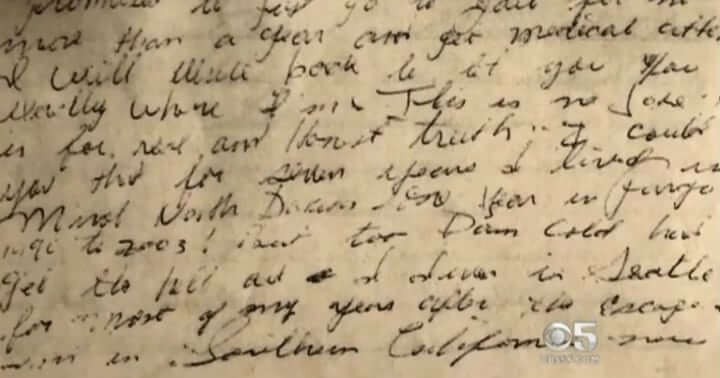 promises to first go to jail for no
more than a year and get medical atte
I will write back to let you you
exactly where I'm This is no Joke
is for real and Honest truth I could
you that for seven years I lived in
Minot North Dakota year in fargo
to 2003! But too Dam Cold had
get the hell out I lived in Seattle
for most of my years after the escape
in Southern California now
CBS 5